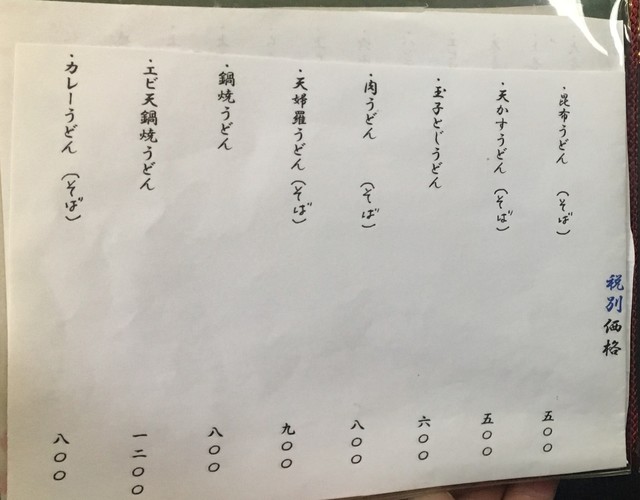 税別価格
・昆布うどん (そば) 五〇〇
・天かすうどん (そば) 五〇〇
・玉子とじうどん 六〇〇
・肉うどん (そば) 八〇〇
・天婦羅うどん (そば) 九〇〇
・鍋焼うどん 八〇〇
・エビ天鍋焼うどん 一二〇〇
・カレーうどん (そば) 八〇〇